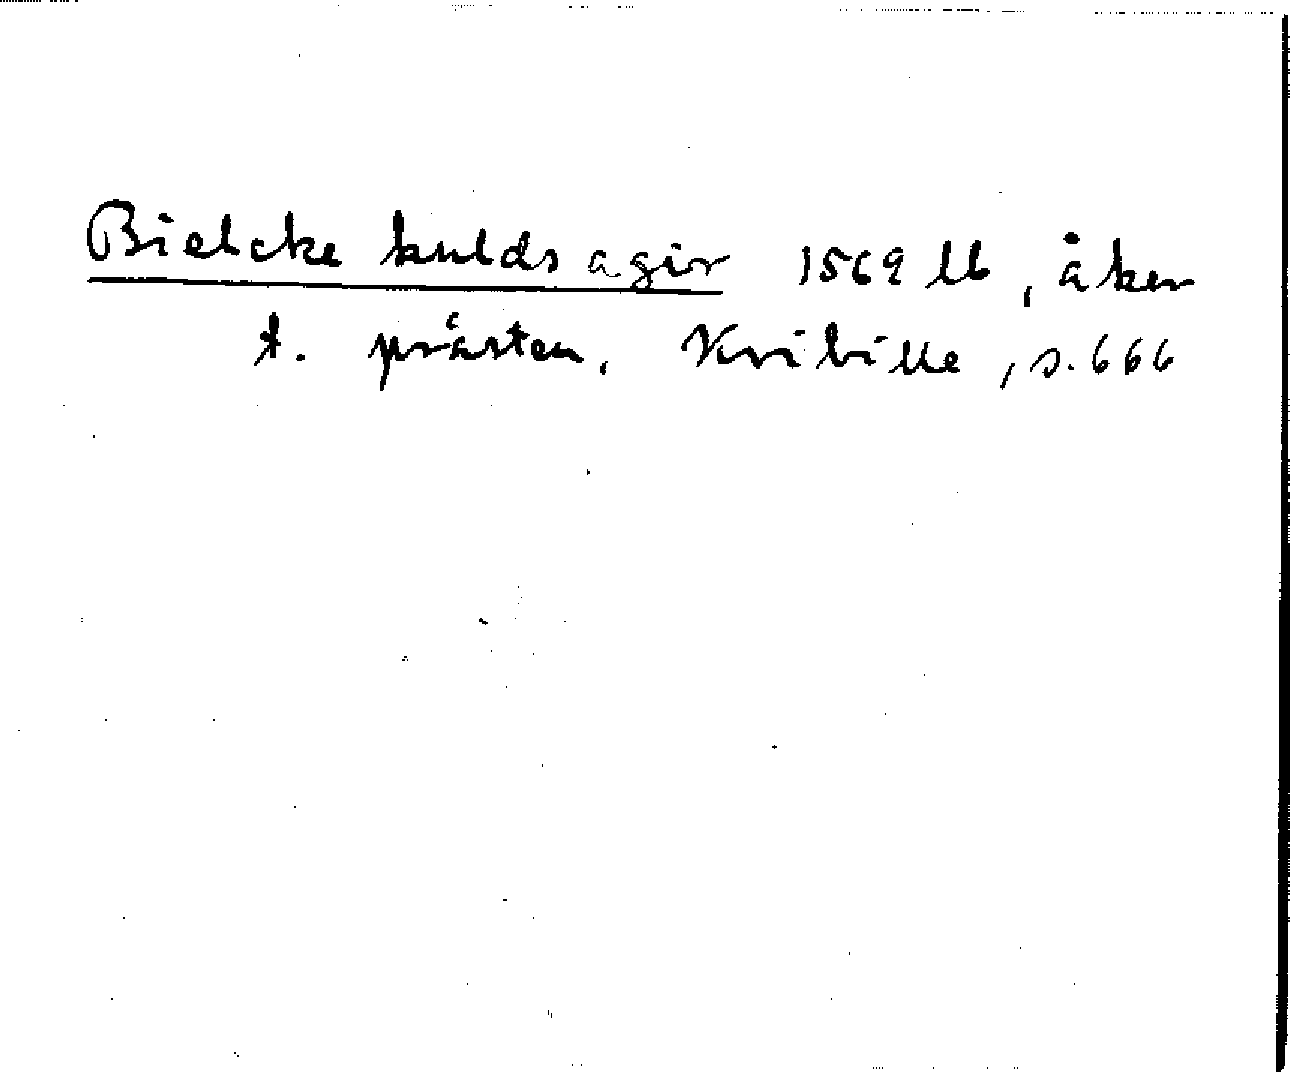 Bielcke kulds agir 1569 lb, åker
t. prästen, Kvibille, s. 666